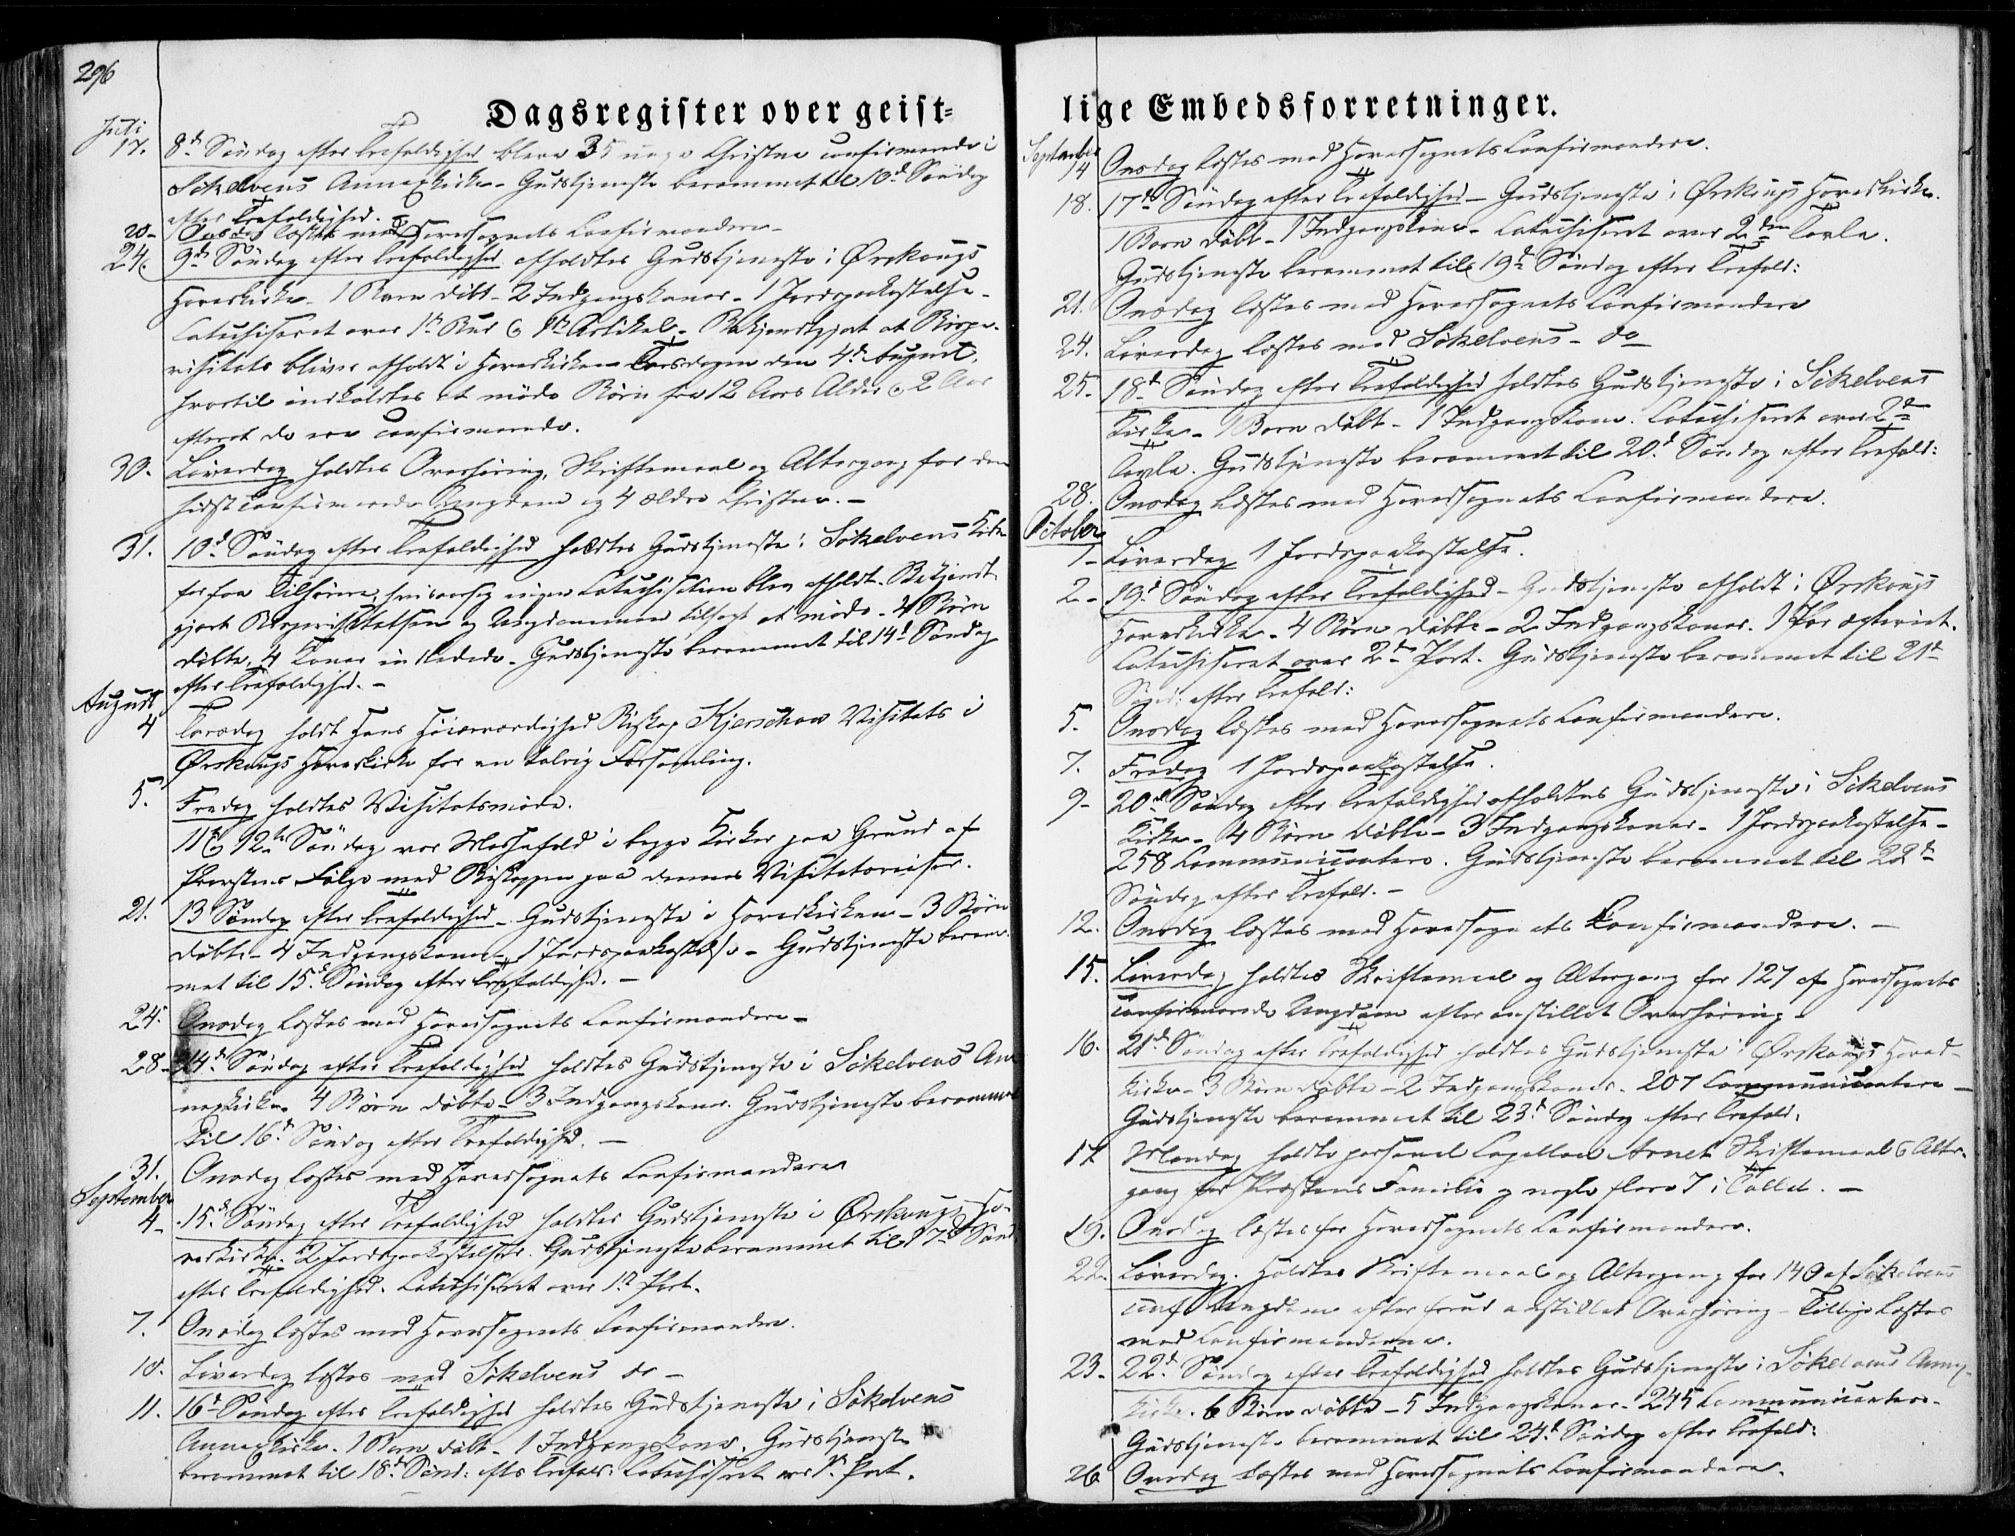 296
Dagsregister over geist=
Juli
17. 8de Søndag efter Trefoldighed bleve 35 unge Christne confirmerede i
Søkelvens Annexkirke - Gudstjeneste berammet til 10de Søndag
efter Trefoldighed.
20- Onsdag læstes med Hovedsognets Confirmandere -
24. 9de Søndag efter Trefoldighed afholdtes Gudstjeneste i Ørskougs
Hovedkirke - 1 Barn döbt - 2 Indgangskoner - 1 Jordpaakastelse -
Catechiseret over 1ste Bud & 1ste Artikel - Bekjendtgjort at Bispe-
visitats bliver afholdt i Hovedkirken Torsdagen den 4de August,
hvortil indkaldtes at møde Børn fra 12 Aars Alder & 2 Aar
efterat de ere confirmerede.
30. Løverdag holdtes Overhøring, Skriftemaal og Altergang for den
sidst confirmerede Ungdom og 4 ældre Christne. -
31. 10de Søndag efter Trefoldighed holdtes Gudstjeneste i Søkelvens Kirke
for faa Tilhørere, hvisaarsag ingen Catechisation blev afholdt. Bekjendt
gjort Bispevisitatsen og Ungdommen tilsagt at møde - 4 Børn
døbte, 4 Koner indledede - Gudstjeneste berammet til 14de Søndag
efter Trefoldighed. -
August
4 Torsdag holdt Hans Høiærværdighed Biskop Kjerschow Visitats i
Ørskougs Hovedkirke for en talrig Forsamling.
5. Fredag holdtes Visitatsmøde.
11te & 12te Søndag var Messefald i begge Kirker paa Grund af
Provstens Følge med Biskoppen paa dennes Visitatsreiser.
21. 13 Søndag efter Trefoldighed - Gudstjeneste i Hovedkirken - 3 Børn
døbte - 4 Indgangskoner - 1 Jordpaakastelse - Gudstjeneste beram-
met til 15de Søndag efter Trefoldighed. -
24. Onsdag læstes med Hovedsognets Confirmandere -
28- 14de Søndag efter Trefoldighed holdtes Gudstjeneste i Søkelvens An-
nexkirke. 4 Børn døbte - 3 Indgangskoner. Gudstjeneste berammet
til 16de Søndag efter Trefoldighed. -
31. Onsdag læstes med Hovedsognets Confirmandere
September
4- 15de Søndag efter Trefoldighed holdtes Gudstjeneste i Ørskougs Ho-
vedkirke. 2 Jordpaakastelser. Gudstjeneste berammet til 17de Sønd.
efter Trefoldighed. Catechiseret over 1ste Part.
7. Onsdag læstes med Hovedsognets Confirmandere.
10. Løverdag læstes med Søkelvens do -
11. 16de Søndag efter Trefoldighed holdtes Gudstjeneste i Søkelvens
Annexkirke. 1 Barn døbt - 1 Indgangskone. Gudstjeneste
berammet til 18de Sønd: efter Trefold: Catechiseret over 1ste Part.
lige Embedsforretninger.
September
14 Onsdag læstes med Hovedsognets Confirmandere.
18. 17de Søndag efter Trefoldighed - Gudstjeneste i Ørskougs Hovedkirke.
1 Barn døbt - 1 Indgangskone - Catechiseret over 2den Tavle.
Gudstjeneste berammet til 19de Søndag efter Trefold:
21. Onsdag læstes med Hovedsognets Confirmandere
24. Løverdag læstes med Søkelvens - do
25. 18de Søndag efter Trefoldighed holdtes Gudstjeneste i Søkelvens
Kirke - 1 Barn døbt - 1 Indgangskone. Catechiseret over 2de
Tavle. Gudstjeneste berammet til 20de Søndag efter Trefold:
28. Onsdag læstes med Hovedsognets Confirmandere.
October
1- Løverdag 1 Jordpaakastelse.
2- 19de Søndag efter Trefoldighed - Gudstjeneste afholdt i Ørskougs
Hovedkirke - 4 Børn døbte - 2 Indgangskoner. 1 Par ægteviet.
Catechiseret over 2den Part. Gudstjeneste berammet til 21de
Sønd: efter Trefold:
5. Onsdag læstes med Hovedsognets Confirmandere.
7. Fredag 1 Jordpaakastelse.
9- 20de Søndag efter Trefoldighed afholdtes Gudstjeneste i Søkelvens
Kirke - 4 Børn døbte - 3 Indgangskoner - 1 Jordpaakastelse -
258 Communicantere. Gudstjeneste berammet til 22de
Søndag efter Trefold. -
12. Onsdag læstes med Hovedsognets Confirmandere. -
15. Løverdag holdtes Skriftemaal og Altergang for 127 af Hovedsognets
confirmerede Ungdom efter anstillet Overhøring -
16. 21de Søndag efter Trefoldighed holdtes Gudstjeneste i Ørskougs Hoved-
kirke - 3 Børn døbte - 2 Indgangskoner - 207 Communicantere -
Gudstjeneste berammet til 23de Søndag efter Trefold.
17 Mandag holdt personel Capellan Arnet Skriftemaal & Alter-
gang for Præstens Familie og nogle flere 7 i Tallet. -
19. Onsdag læstes for Hovedsognets Confirmandere.
22. Løverdag. Holdtes Skriftemaal og Altergang for 140 af Søkelvens
conf. Ungdom efter forud anstillet Overhøring - Tillige læstes
med Confirmanderne.
23- 22de Søndag efter Trefoldighed holdtes Gudstjeneste i Søkelvens Annex-
kirke. 6 Børn døbte - 5 Indgangskoner - 245 Communicantere.
Gudstjeneste berammet til 24de Søndag efter Trefold:
26 Onsdag læstes med Hovedsognets Confirmandere.